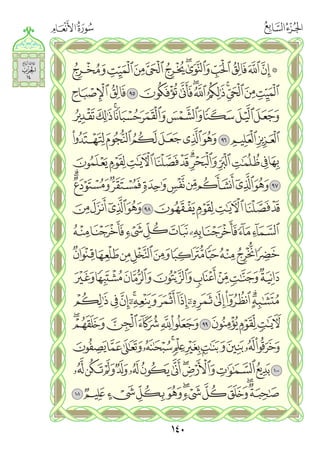 الجُزْءُ السَّابِعُ
سُورَةُ الأَنْعَامِ
الحِزْب
١٤
۞ إِنَّ ٱللَّهَ فَالِقُ ٱلۡحَبِّ وَٱلنَّوَىٰۖ يُخۡرِجُ ٱلۡحَيَّ مِنَ ٱلۡمَيِّتِ وَمُخۡرِجُ
ٱلۡمَيِّتِ مِنَ ٱلۡحَيِّۚ ذَٰلِكُمُ ٱللَّهُۖ فَأَنَّىٰ تُؤۡفَكُونَ ٩٥ فَالِقُ ٱلۡإِصۡبَاحِ
وَجَعَلَ ٱلَّيۡلَ سَكَنٗا وَٱلشَّمۡسَ وَٱلۡقَمَرَ حُسۡبَانٗاۚ ذَٰلِكَ تَقۡدِيرُ
ٱلۡعَزِيزِ ٱلۡعَلِيمِ ٩٦ وَهُوَ ٱلَّذِي جَعَلَ لَكُمُ ٱلنُّجُومَ لِتَهۡتَدُواْ
بِهَا فِي ظُلُمَٰتِ ٱلۡبَرِّ وَٱلۡبَحۡرِۗ قَدۡ فَصَّلۡنَا ٱلۡأٓيَٰتِ لِقَوۡمٖ يَعۡلَمُونَ
٩٧ وَهُوَ ٱلَّذِيٓ أَنشَأَكُم مِّن نَّفۡسٖ وَٰحِدَةٖ فَمُسۡتَقَرّٞ وَمُسۡتَوۡدَعٞۗ
قَدۡ فَصَّلۡنَا ٱلۡأٓيَٰتِ لِقَوۡمٖ يَفۡقَهُونَ ٩٨ وَهُوَ ٱلَّذِيٓ أَنزَلَ مِنَ
ٱلسَّمَآءِ مَآءٗ فَأَخۡرَجۡنَا بِهِۦ نَبَاتَ كُلِّ شَيۡءٖ فَأَخۡرَجۡنَا مِنۡهُ
خَضِرٗا نُّخۡرِجُ مِنۡهُ حَبّٗا مُّتَرَاكِبٗا وَمِنَ ٱلنَّخۡلِ مِن طَلۡعِهَا قِنۡوَانٞ
دَانِيَةٞ وَجَنَّٰتٖ مِّنۡ أَعۡنَابٖ وَٱلزَّيۡتُونَ وَٱلرُّمَّانَ مُشۡتَبِهٗا وَغَيۡرَ
مُتَشَٰبِهٍۗ ٱنظُرُوٓاْ إِلَىٰ ثَمَرِهِۦٓ إِذَآ أَثۡمَرَ وَيَنۡعِهِۦٓۚ إِنَّ فِي ذَٰلِكُمۡ
لَأٓيَٰتٖ لِّقَوۡمٖ يُؤۡمِنُونَ ٩٩ وَجَعَلُواْ لِلَّهِ شُرَكَآءَ ٱلۡجِنَّ وَخَلَقَهُمۡۖ
وَخَرَقُواْ لَهُۥ بَنِينَ وَبَنَٰتِۭ بِغَيۡرِ عِلۡمٖۚ سُبۡحَٰنَهُۥ وَتَعَٰلَىٰ عَمَّا يَصِفُونَ
١٠٠ بَدِيعُ ٱلسَّمَٰوَٰتِ وَٱلۡأَرۡضِۖ أَنَّىٰ يَكُونُ لَهُۥ وَلَدٞ وَلَمۡ تَكُن لَّهُۥ
صَٰحِبَةٞۖ وَخَلَقَ كُلَّ شَيۡءٖۖ وَهُوَ بِكُلِّ شَيۡءٍ عَلِيمٞ ١٠١
١٤٠